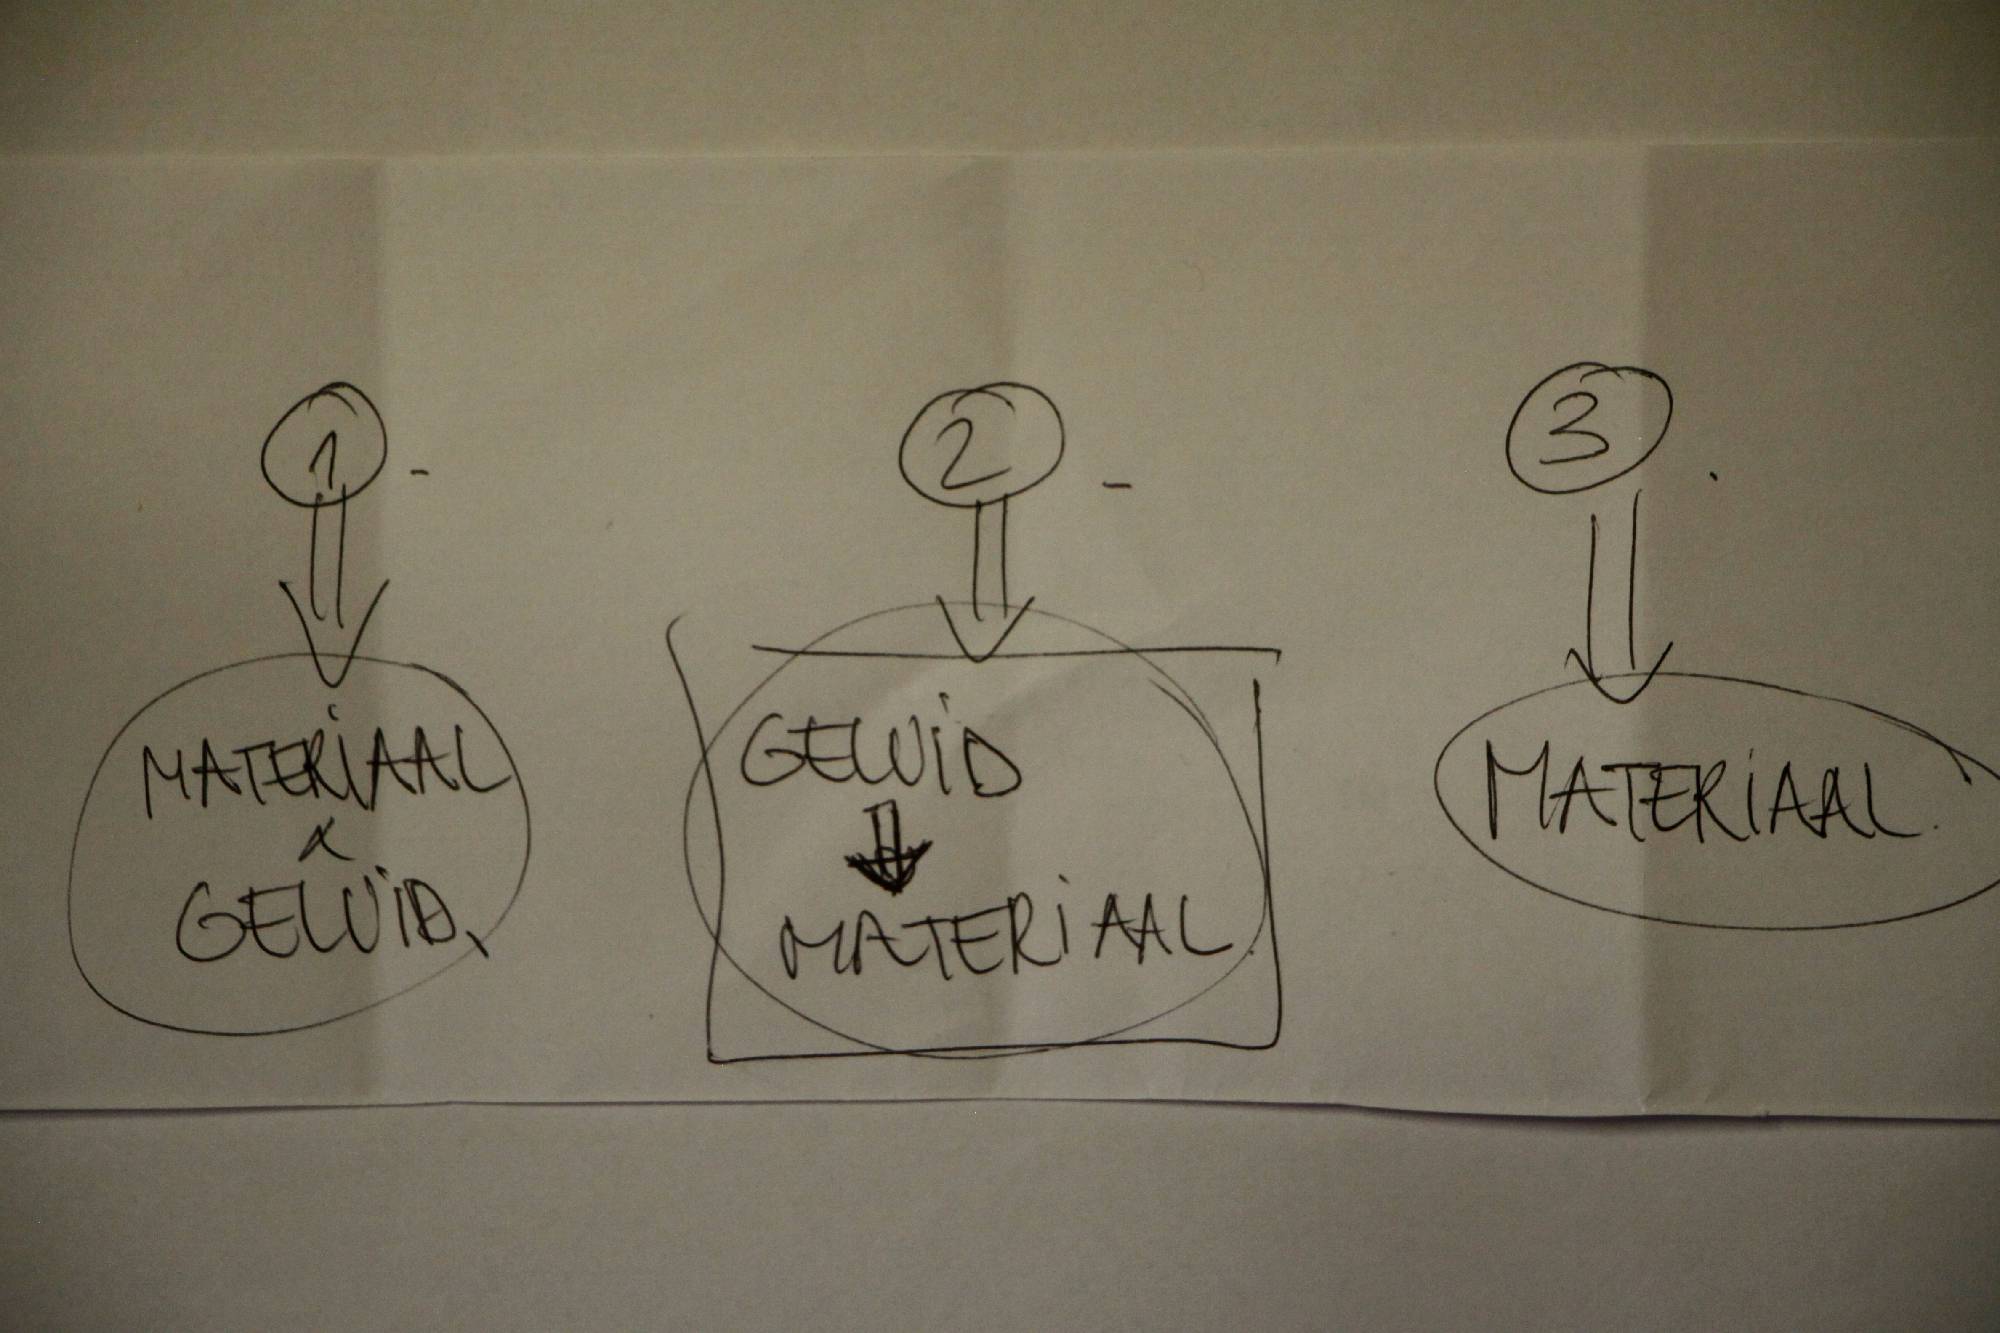 1 - 2 - 3 .
MATERIAAL
&
GELUID.
GELUID
MATERIAAL.
MATERIAAL.